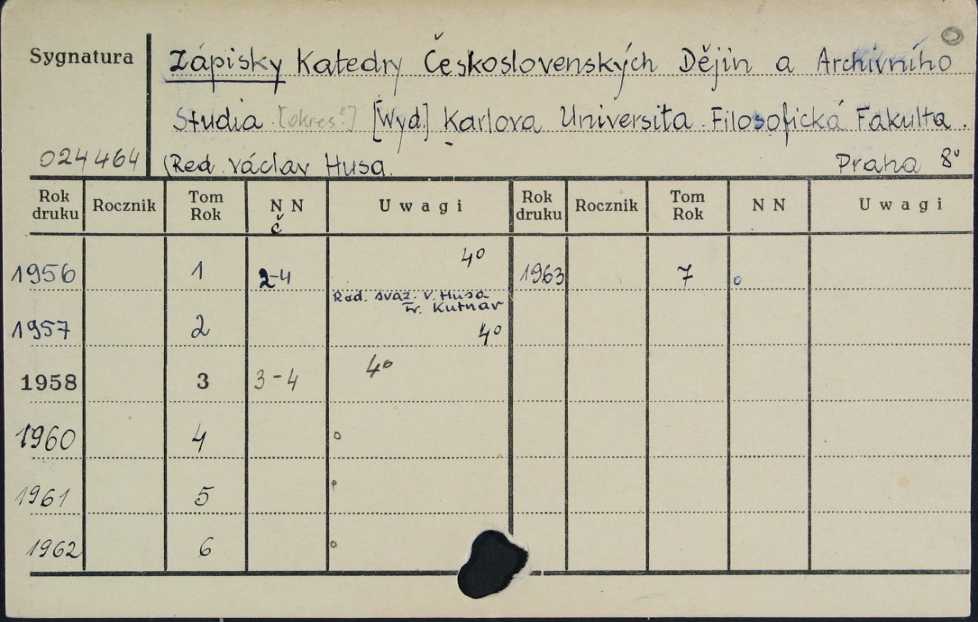 Sygnatura
Zápisky Katedry Československých Dějin a Archivního
Studia [okres?] [Wyd.] Karlova Universita. Filosofická Fakulta.
024464 (Red. Václav Husa. Praha 8°
Rok druku Rocznik Tom Rok NN č Uwagi Rok druku Rocznik Tom Rok NN Uwagi
1956 1 2-4 4° 1963 7 °
Red. svaz. V. Husa
Fr. Kutnar
1957 2 4°
1958 3 3-4 4°
1960 4 °
1961 5
1962 6 °